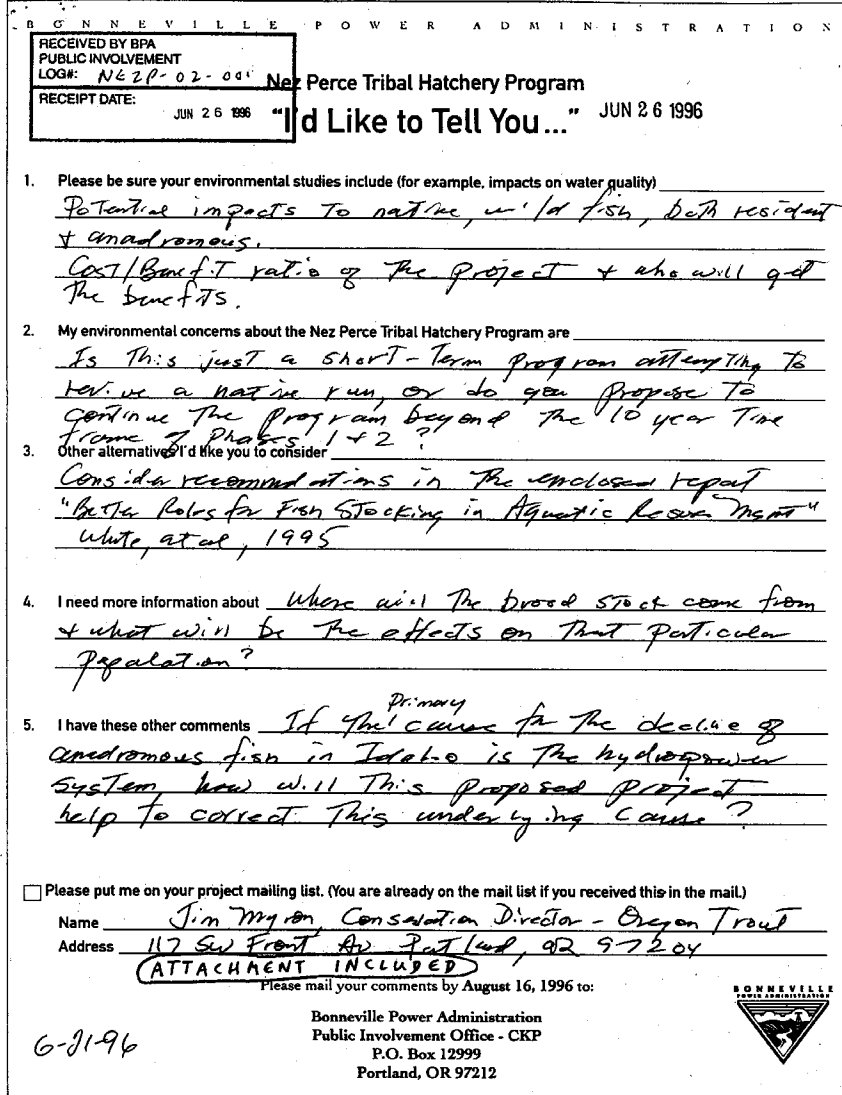 BONNEVILLE POWER ADMINISTRATION
RECEIVED BY BPA
PUBLIC INVOLVEMENT
LOG#: NEZP-02-001
RECEIPT DATE:
JUN 26 1996
Nez Perce Tribal Hatchery Program
"I'd Like to Tell You..." JUN 26 1996
1. Please be sure your environmental studies include (for example, impacts on water quality)
Potential impacts to native, wild fish, both resident
+ anadromous.
Cost/Benefit ratio of the project + who will get
the benefits.
2. My environmental concerns about the Nez Perce Tribal Hatchery Program are
Is this just a short-term program attempting to
revive a native run, or do you propose to
continue the program beyond the 10 year time
frame of Phases 1 + 2 ?
3. Other alternatives I'd like you to consider
Consider recommendations in the enclosed report
"Better Roles for Fish Stocking in Aquatic Resource Mgmt"
White, et al, 1995
4. I need more information about Where will the brood stock come from
+ what will be the effects on that particular
population?
Primary
5. I have these other comments If the cause for the decline of
anadromous fish in Idaho is the hydropower
system, how will this proposed project
help to correct this underlying cause?
Please put me on your project mailing list. (You are already on the mail list if you received this in the mail.)
Name Jim Myron, Conservation Director - Oregon Trout
Address 117 SW Front Av Portland, OR 97204
ATTACHMENT INCLUDED
Please mail your comments by August 16, 1996 to:
BONNEVILLE
POWER ADMINISTRATION
Bonneville Power Administration
Public Involvement Office - CKP
P.O. Box 12999
Portland, OR 97212
6-21-96